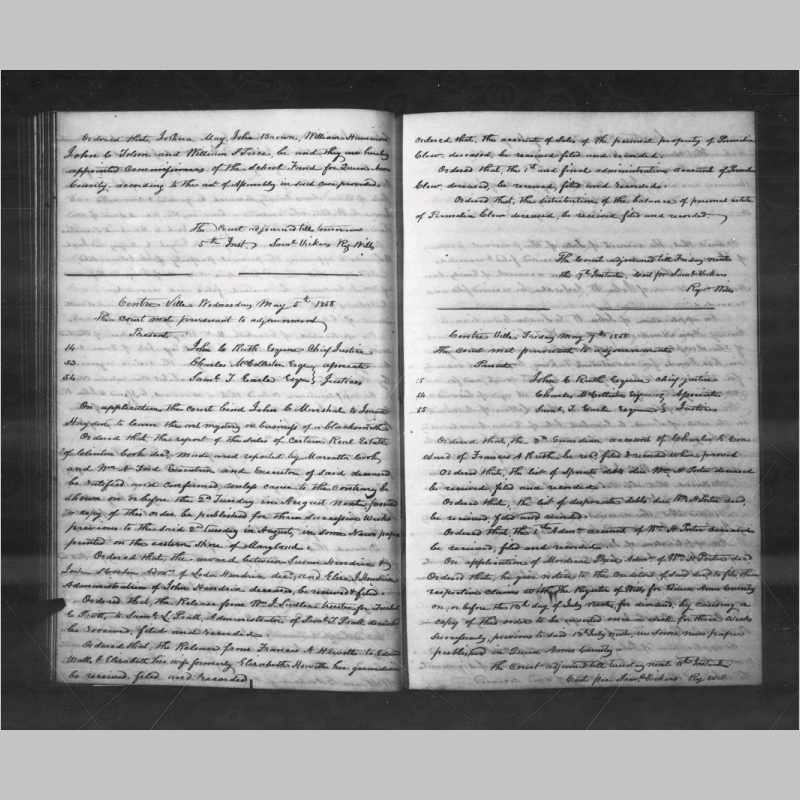 Ordered that, Joshua May, John Brown, William
John C and William S Price, be and they are hereby
appointed Commissioners of the School Fund for Queen Anns
County, according to the act of Assembly in such case provided.
The Court adjourned till tomorrow
5th Inst. Saml Vickers Reg Wills
Centre Ville Wednesday May 5th 1858
The court met pursuant to adjournment
Present
14 John C Ruth Esquire Chief Justice
53 Charles Esqr associate
54 Saml T Earle Esqr Justices
On application the court bind John C to
Haydon to learn the art mystery or business of a blacksmith
Ordered that the report of the sales of certain Real Estate
of Cook decd, made and reported by Cook
and Wm A Ford Executrix and Executor of said deceased
be ratified and confirmed, unless cause to the contrary be
shown on or before the 2nd Tuesday in August next, provided
a copy of this order be published for three successive weeks
previous to the said 2nd Tuesday in August, in some News paper
printed on the eastern Shore of Maryland.
Ordered that, the award between Susan Hendrix by
Admr. of decd, and J Hendrix
Administration of John Hendrix deceased, be received & filed.
Ordered that, the Release from Wm J trustee for
C Pratt, to Saml L Pratt, Administrator of Saml T Pratt deceased
be received, filed and recorded
Ordered that, the Release from Francis A Hewitt to
Watts & Elizabeth his wife formerly Elizabeth Hewitt her guardian
be received filed and recorded
ordered that, the account of Sales of the personal property of
Clow deceased, be received filed and recorded.
Ordered that, the 1st and final administration account of
Clow deceased, be received, filed and recorded.
Ordered that, the distribution of the balance of personal estate
of Clow deceased, be received filed and recorded.
The Court adjourned till Friday next
the 7th Instant, test for Saml Vickers
Regr Wills
Centre Ville Friday May 7th 1858
The court met pursuant to adjournment
Present
15 John C Ruth Esquire chief justice
54 Charles Esqr Associate
55 Saml T Earle Esquire Justices
Ordered that, the Guardian account of Charles
Ward of Francis A Ruth, be recd filed & recorded when proved
Ordered that, the list of Sperate debts due Wm. A Porter deceased
be received filed and recorded.
Ordered that, the list of desperate debts due Wm A Porter decd,
be received, filed and recorded.
Ordered that the 1st Admn account of Wm A Porter deceased
be received, filed and recorded.
On application of Price Admr. of Wm A Porter decd
Ordered that, he give notice to the Creditors of said decd to file their
respective claims with the Register of Wills for Queen Anns County
on, or before the 13th day of July next, for demand, by causing a
copy of this order to be inserted once a week for three weeks
Successively, previous to said 13th July next, in some news paper
published in Queen Anns County.
The Court adjourned till Tuesday next 11th Instant
Test for Saml Vickers Reg Will